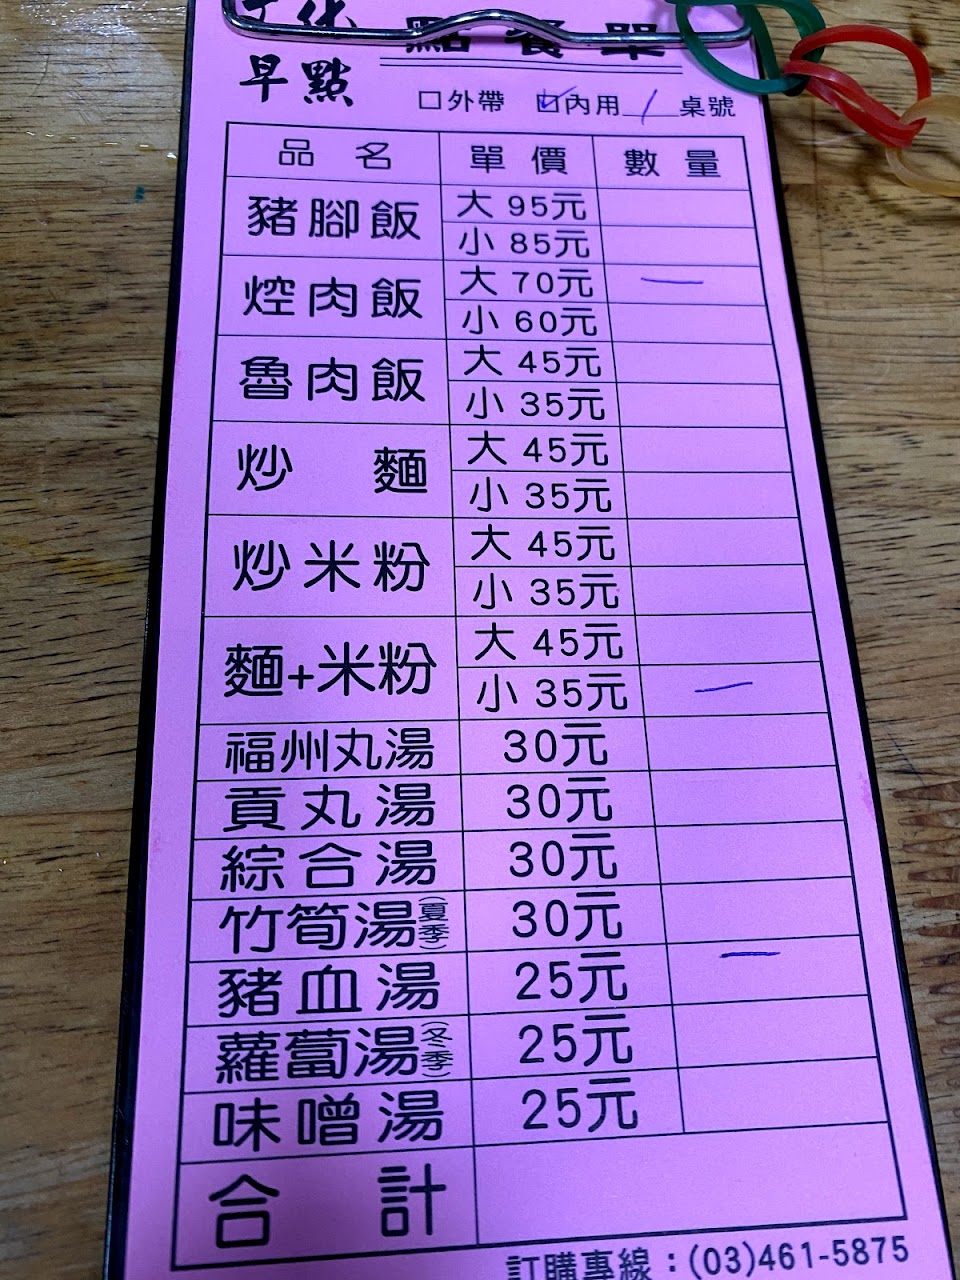 文化 點餐單
早點
□外帶 ☑內用 / 桌號
品名 單價 數量
豬腳飯 大 95元
小 85元
焢肉飯 大 70元 一
小 60元
魯肉飯 大 45元
小 35元
炒麵 大 45元
小 35元
炒米粉 大 45元
小 35元
麵+米粉 大 45元
小 35元 一
福州丸湯 30元
貢丸湯 30元
綜合湯 30元
竹筍湯(夏季) 30元
豬血湯 25元 一
蘿蔔湯(冬季) 25元
味噌湯 25元
合計
訂購專線：(03)461-5875